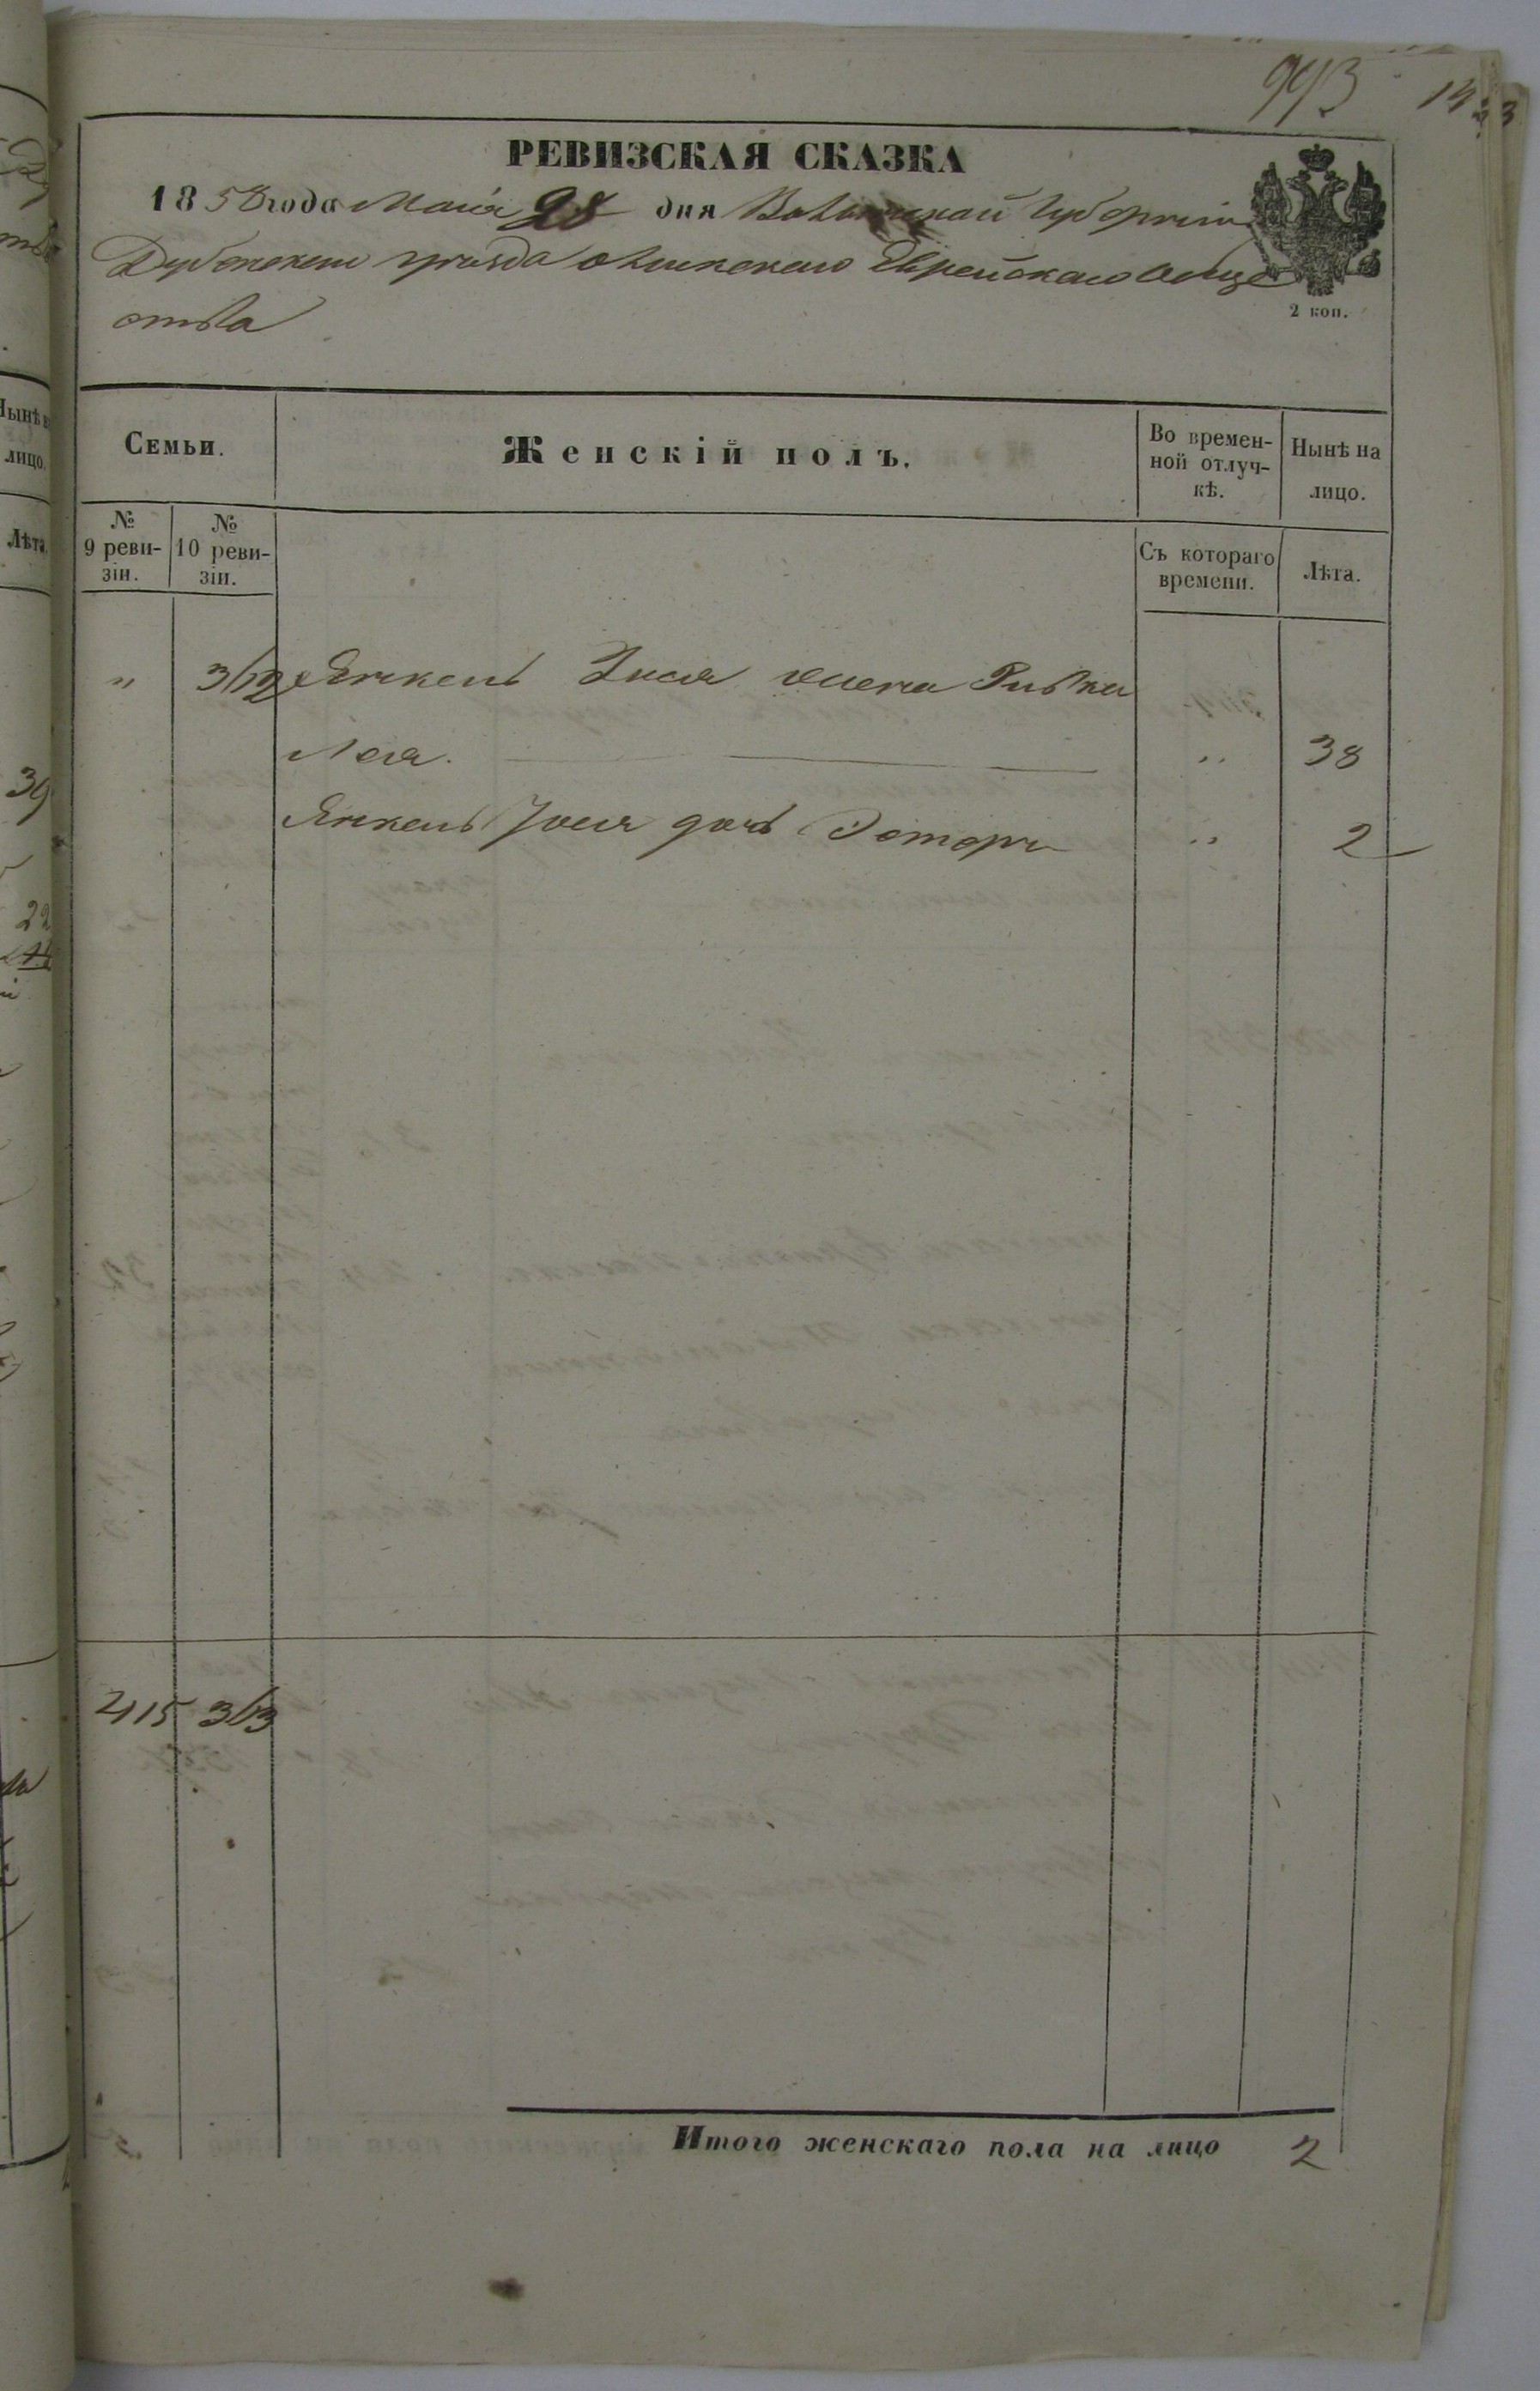 993
РЕВИЗСКАЯ СКАЗКА
1858 года Маія 28 дня Волынской Губерніи
Дубенскаго уѣзда Олыкскаго Еврейскаго Обще
ства
2 коп.
Семьи.
Женскій полъ.
Во времен-
ной отлуч-
кѣ.
Нынѣ на
лицо.
№
9 реви-
зіи.
№
10 реви-
зіи.
Съ котораго
времени.
Лѣта.
" 312 Янкель жена Ривка
Лея. " 38
Янкель дочь Эстеръ " 2
415 313
Итого женскаго пола на лицо 2
Нынѣ н
лицо.
Лѣта.
39
22